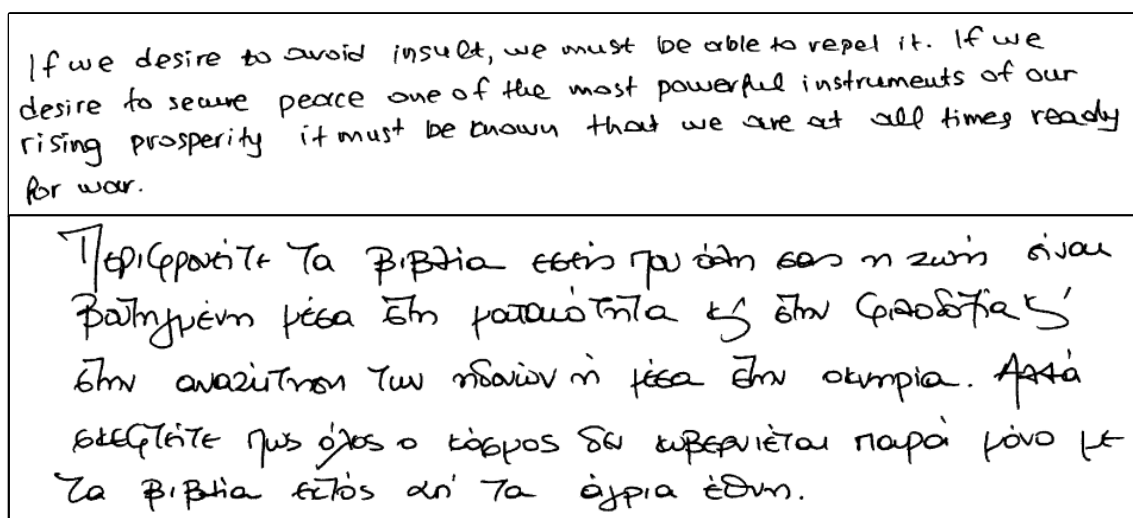 If we desire to avoid insult, we must be able to repel it. If we
desire to secure peace one of the most powerful instruments of our
rising prosperity it must be known that we are at all times ready
for war.
Περιφρονείτε τα βιβλία εσείς που όλη σας η ζωή είναι
βυθισμένη μέσα στη ματαιότητα κ' στην φιλοδοξία κ'
στην αναζύτηση των ηδονών ή μέσα στην οκνηρία. Αλλά
σκεφτείτε πως όλος ο κόσμος δεν κυβερνιέται παρά μόνο με
τα βιβλία εκτός απ' τα άγρια έθνη.